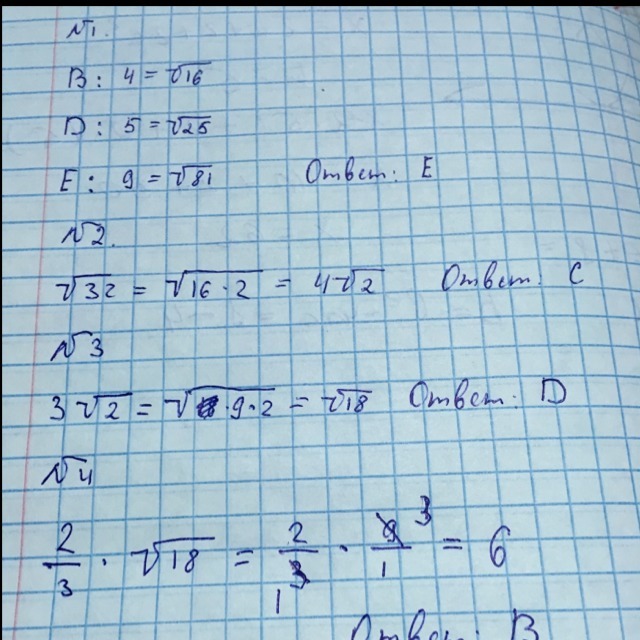 №1.
B: 4 = √16
D: 5 = √25
E: 9 = √81 Ответ: E
№2.
√32 = √16·2 = 4√2 Ответ: C
№3
3√2 = √9·2 = √18 Ответ: D
№4
2/3 · √18 = 2/3 1 · 9/1 3 = 6
Ответ: B